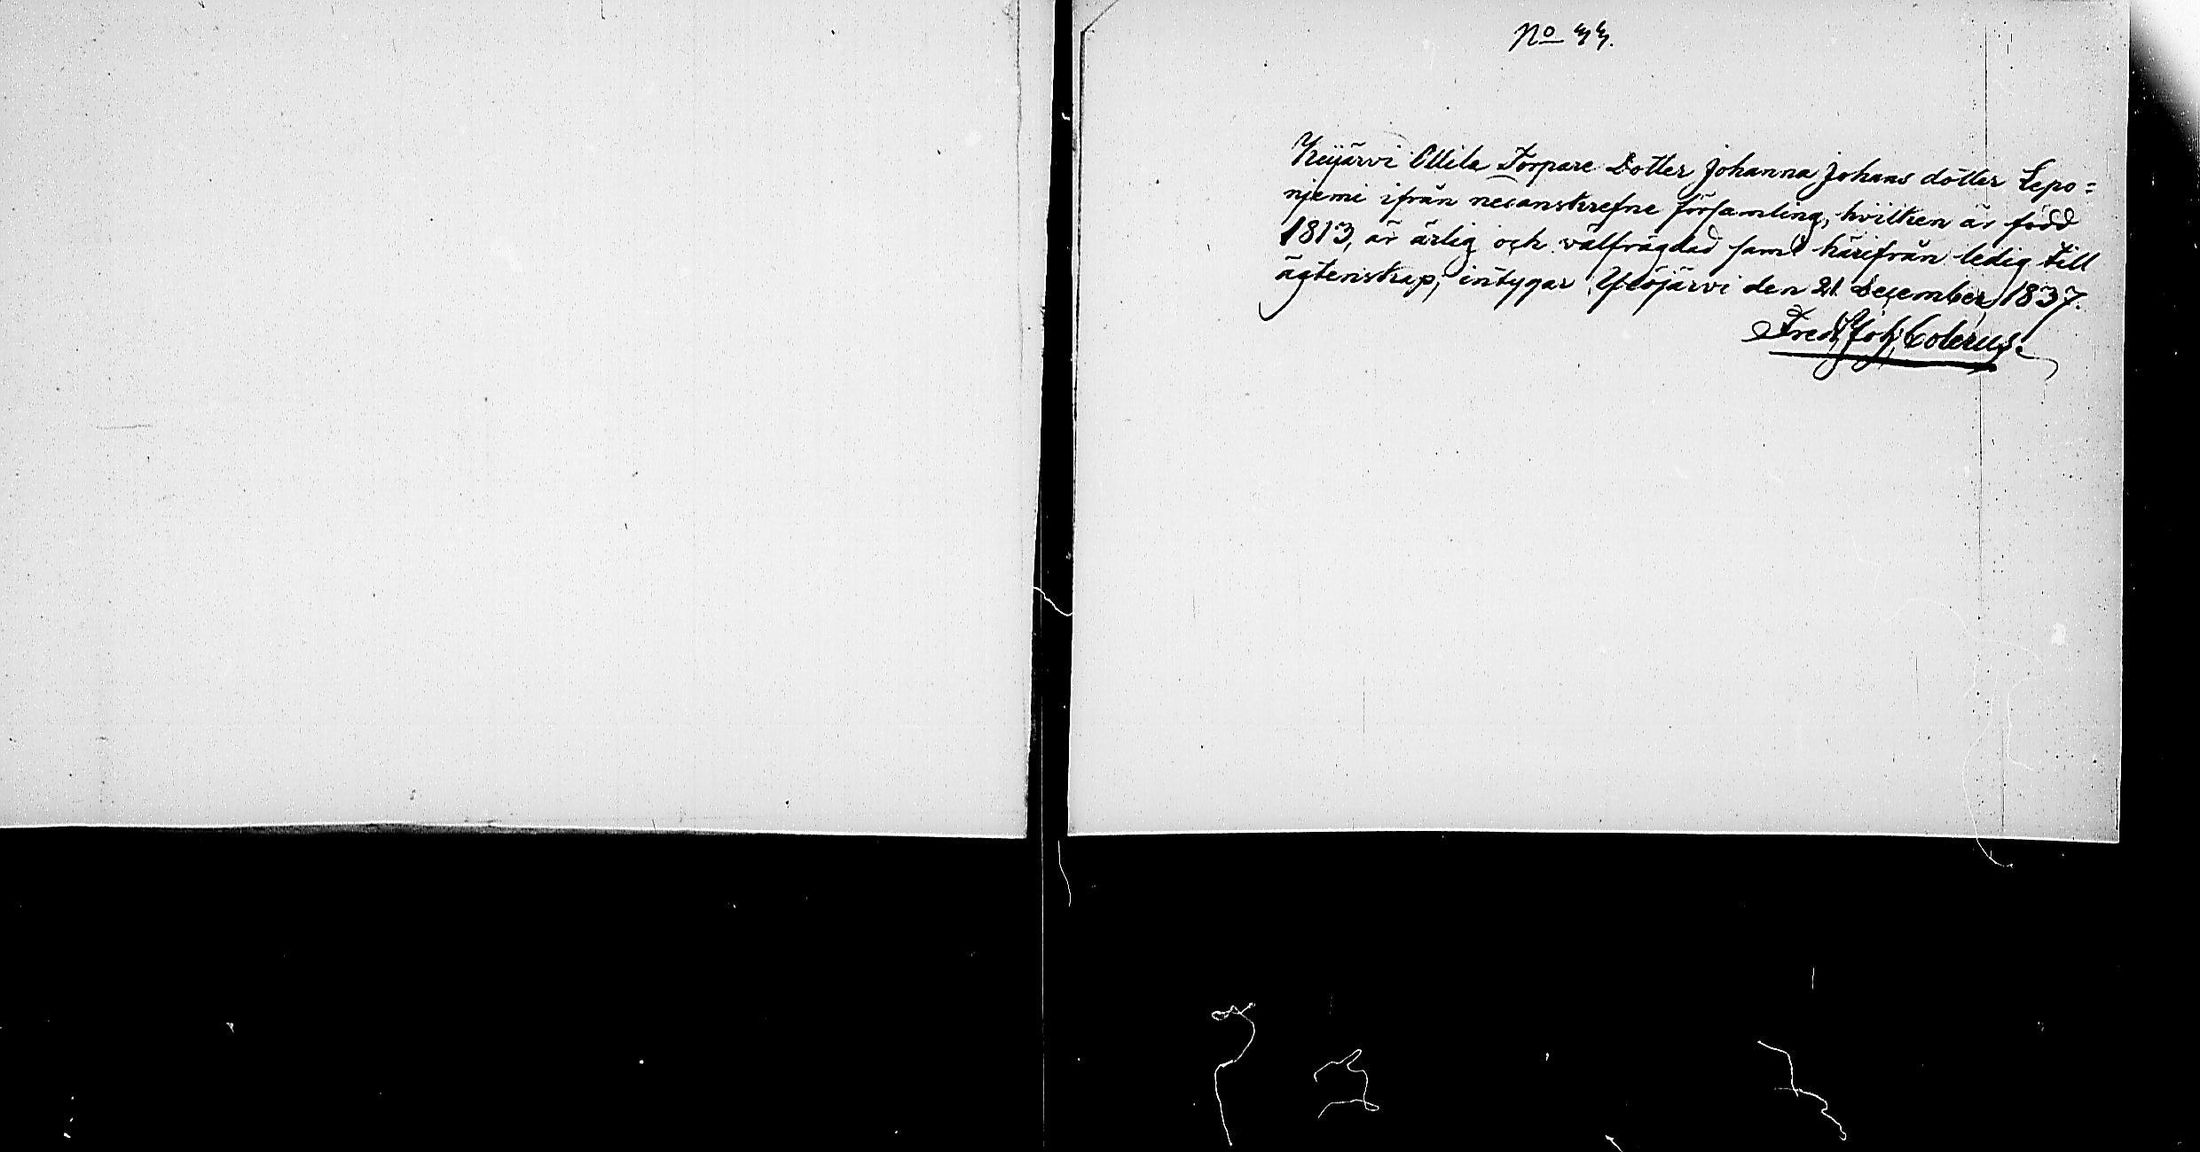 No 44.
Keijärvi Ollila Torpare Dotter Johanna Johans dotter Lepo=
niemi ifrån neanskrefne församling, hvilken är född
1813, är ärlig och välfrägdad samt härifrån ledig till
ägtenskap; intygar Ylöjärvi den 21 December 1837.
Fredr Joh Colerus.